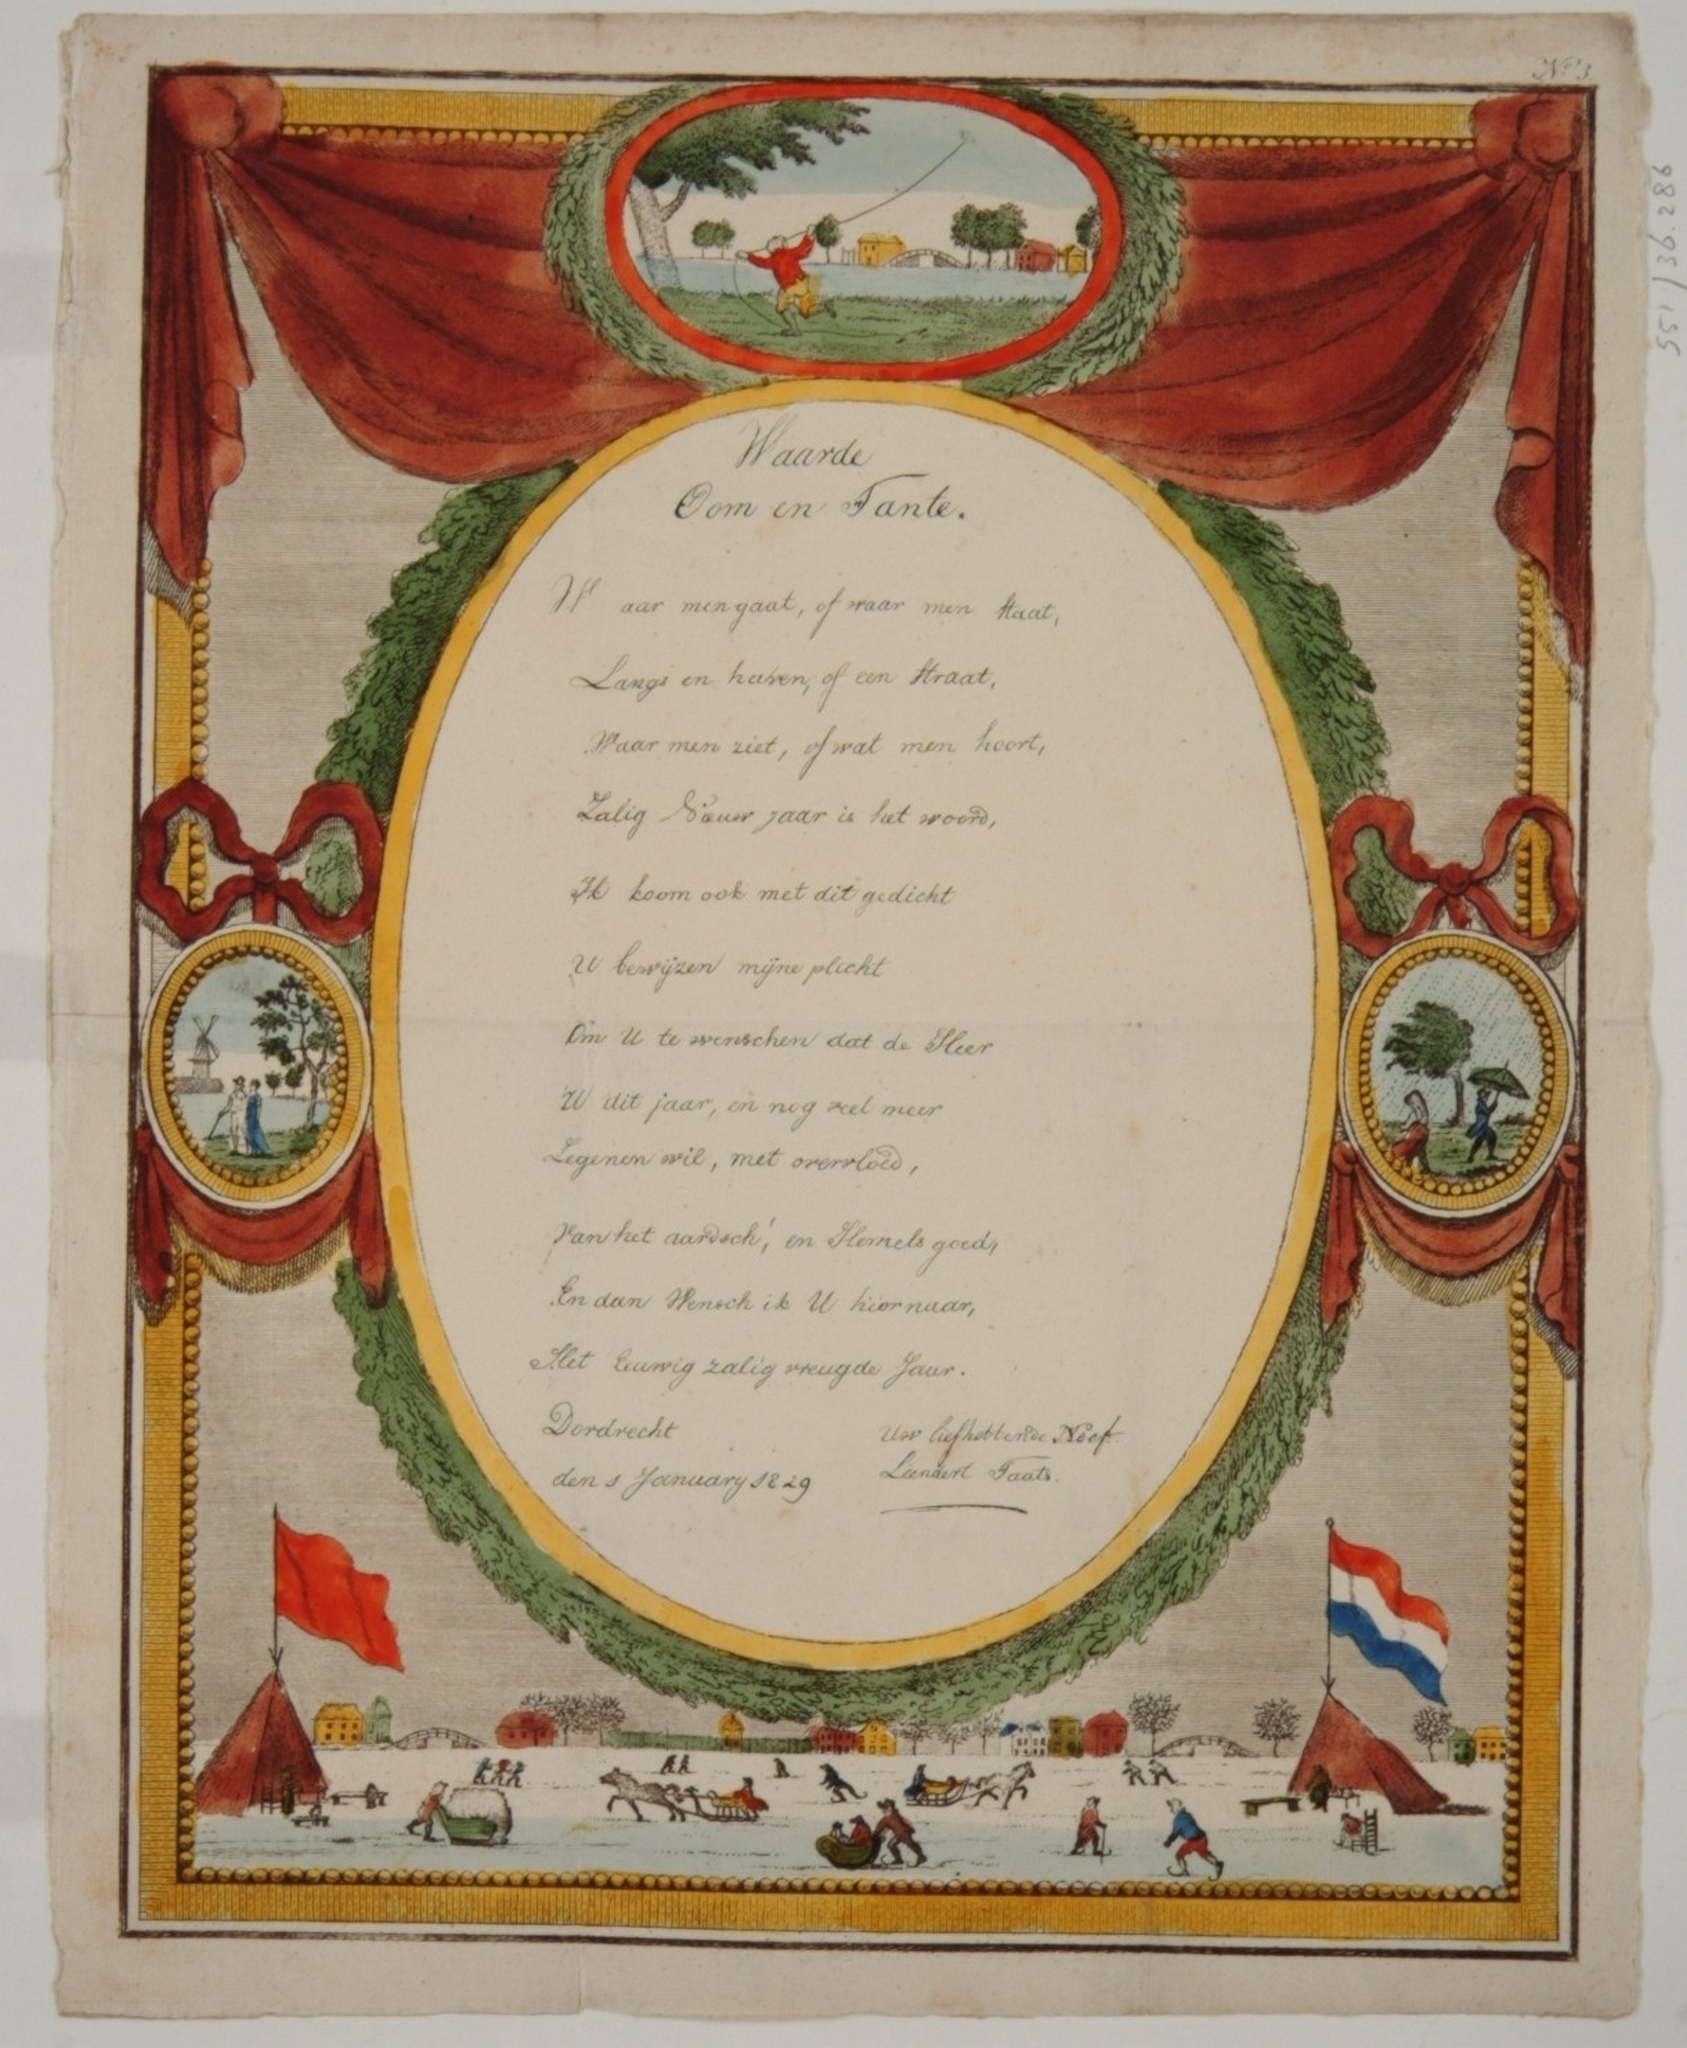 No. 3
551/36.286
Waarde
Oom en Tante.
Waar men gaat, of waar men staat,
Langs en haven, of een straat,
Waar men ziet, of wat men hoort,
Zalig Nieuw jaar is het woord,
Ik koom ook met dit gedicht
U bewijzen mijne plicht
Om U te wenschen dat de Heer
U dit jaar, en nog veel meer
Zegenen wil, met overvloed,
Van het aardsch', en Hemels goed,
En dan Wensch ik U hiernaar,
Het Eeuwig zalig vreugde Jaar.
Dordrecht
den 1 January 1829
Uw liefhebbende Neef
Leendert Taats.